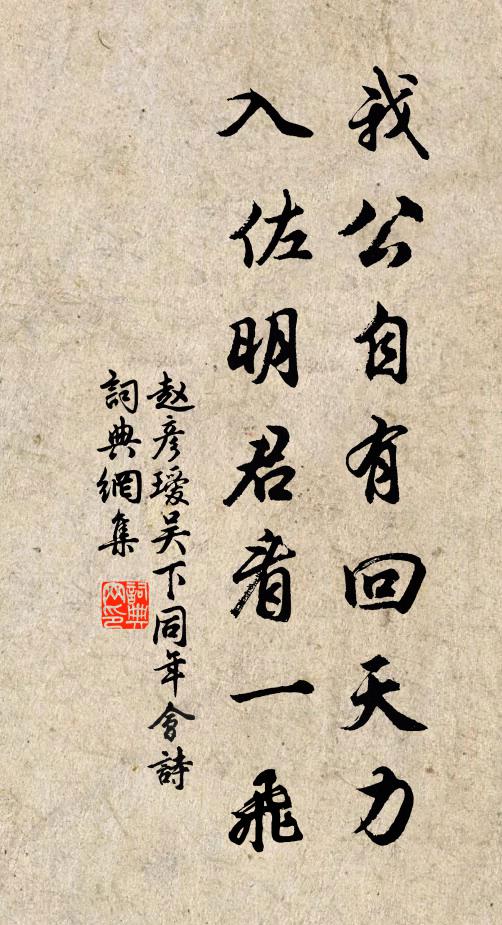 我公自有回天力
入佐明君看一飛
赵彥璦吴下同年會詩
詞典網集
詞典网印